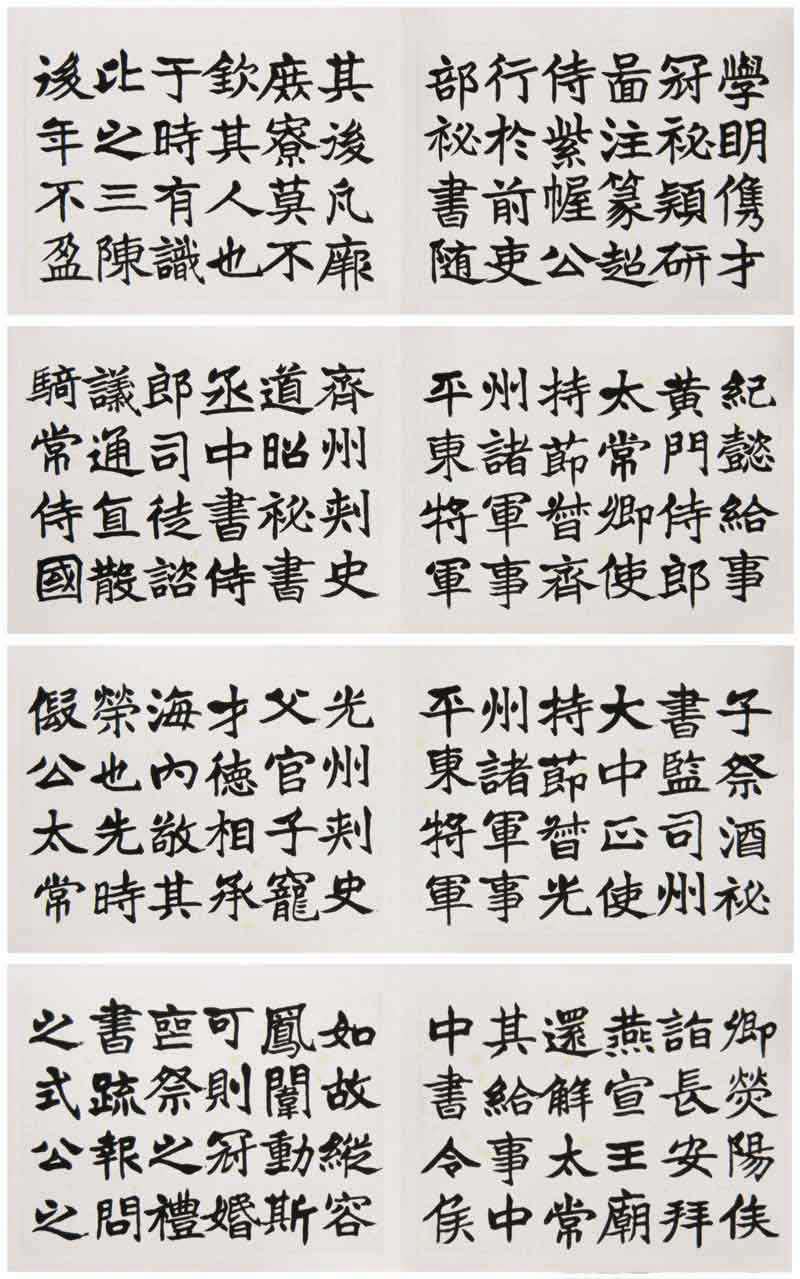 學明儁才
冠祕穎研
啚注篆超
侍紫幄公
行於前吏
部祕書随
其後凡廓
庶寮莫不
欽其人也
于時有識
比之三陳
後年不盈
紀懿給事
黃門侍郎
太常卿使
持節督齊
州諸軍事
平東將軍
齊州刾史
道昭祕書
丞中書侍
郎司徒諮
議通直散
騎常侍國
子祭酒祕
書監司州
大中正使
持節督光
州諸軍事
平東將軍
光州刾史
父官子寵
才徳相承
海內敬其
榮也先時
假公太常
卿熒陽侯
詣長安拜
燕宣王廟
還解太常
其給事中
中書令侯
如故縱容
鳳闈動斯
可則冠婚
喪祭之禮
書疏報問
之式公之